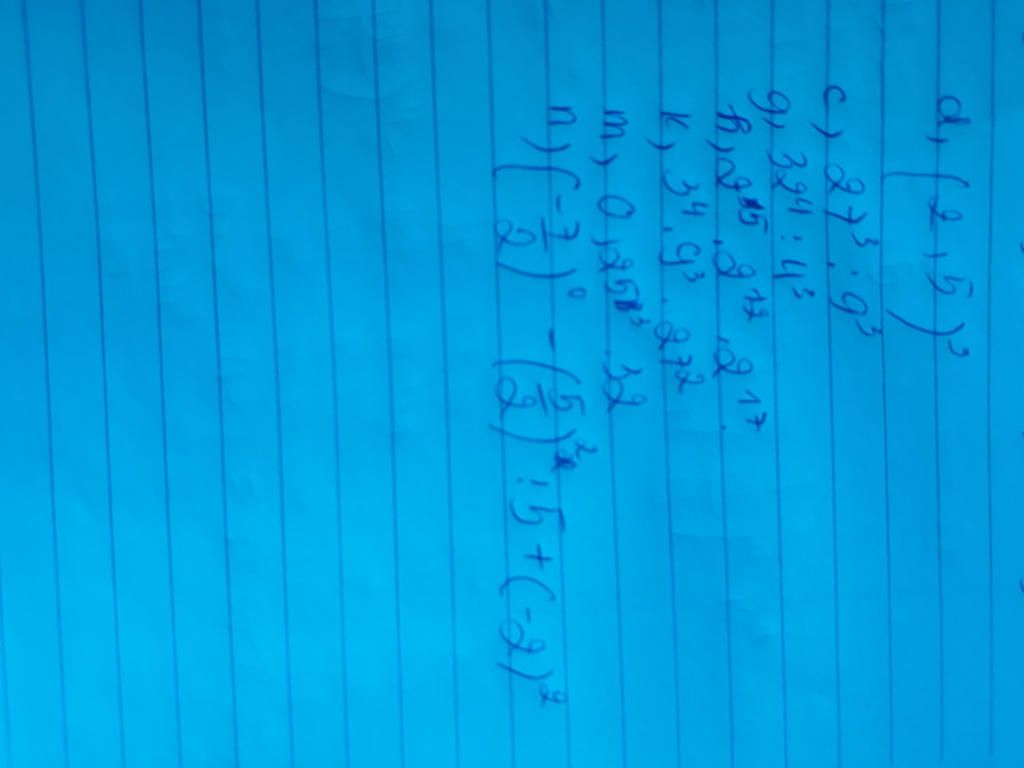 d, (2,5)³
c, 27³ : 9³
g, 32⁴ : 4³
h, 2¹⁵ . 2¹² . 2¹⁷.
k, 3⁴ . 9³ . 27²
m, 0,25³ . 32
n, (-7/2)⁰ - (5/2)² : 5 + (-2)²